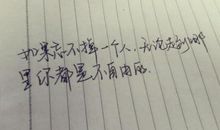 如果忘不掉一个人,无论走到哪
里你都是不自由的.